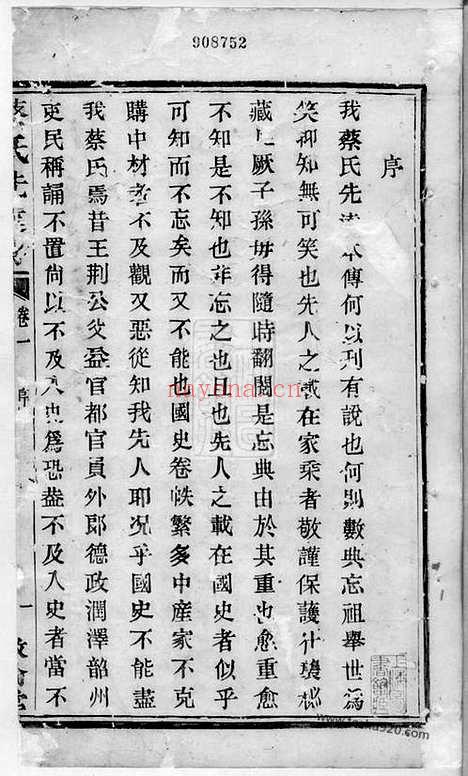 908752
序
我蔡氏先清本傳何以刋有說也何則數典忘祖舉世爲
笑抑知無可笑也先人之載在家乘者敬謹保護什襲秘
藏厥子孫毋得隨時翻閱是忘典由於其重也愈重愈
不知是不知也非忘之也且也先人之載在國史者似乎
可知而不忘矣而又不能也國史卷帙繁多中産家不克
購中材者不及觀又惡從知我先人耶況乎國史不能盡
我蔡氏焉昔王荆公父益官都官員外郎德政潤澤韶州
吏民稱誦不置尙以不及入史爲恐葢不及入史者當不
蔡氏 卷一 序 一
nayona.cn